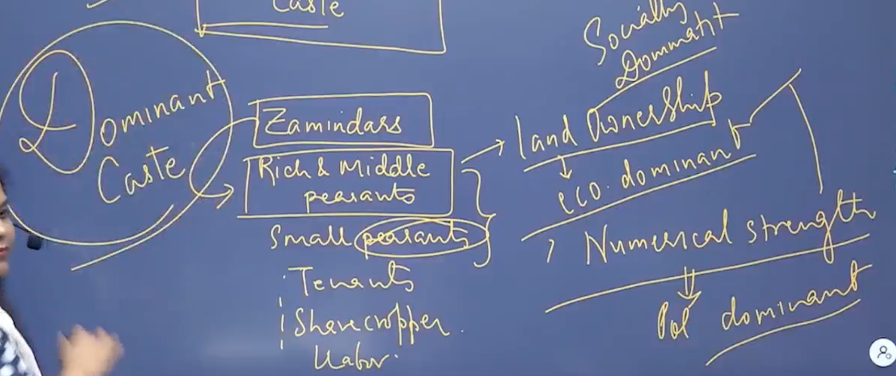 Caste
Dominant
Caste
Zamindars
Rich & Middle
peasants
Small peasants
Tenants
Sharecropper.
Socially
Dominatnt
land Ownership
eco. dominant
Numerical strength
Pol dominant